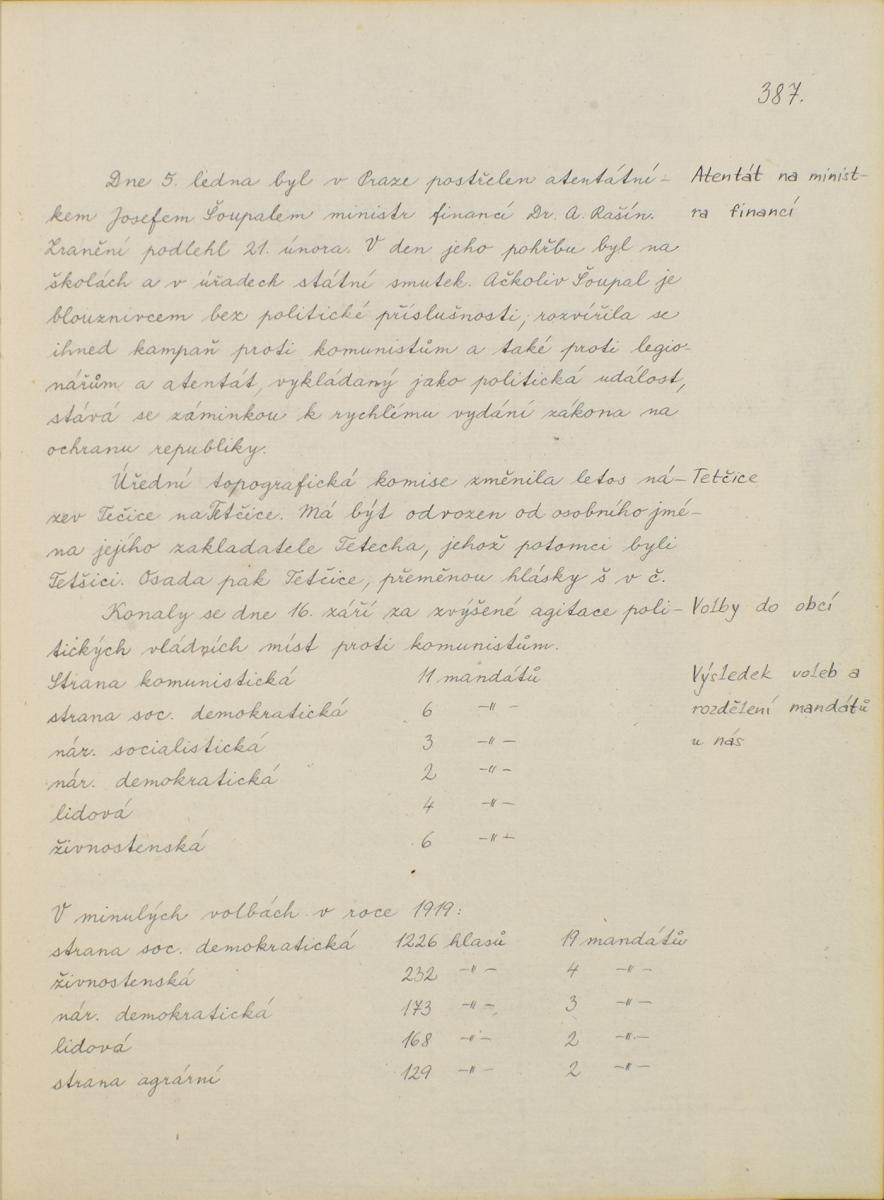 387.
Dne 5. ledna byl v Praze postřelen atentátní-
Atentát na minist-
kem Josefem Šoupalem ministr financí Dr. A. Rašín.
ra financí
Zranění podlehl 21. února. V den jeho pohřbu byl na
školách a v úřadech státní smutek. Ačkoliv Šoupal je
blouznivcem bez politické příslušnosti, rozvířila se
ihned kampaň proti komunistům a také proti legio-
nářům a atentát, vykládaný jako politická událost,
stává se záminkou k rychlému vydání zákona na
ochranu republiky.
Úřední topografická komise změnila letos ná-
Tetčice
zev Tečice na Tetčice. Má být odvozen od osobního jmé-
na jejího zakladatele Tetecha, jehož potomci byli
Tetšici. Osada pak Tetčice, přeměnou hlásky š v č.
Konaly se dne 16. září za zvýšené agitace poli-
Volby do obcí
tických vládních míst proti komunistům.
Strana komunistická 11 mandátů
Výsledek voleb a
strana soc. demokratická 6 -"-
rozdělení mandátů
nár. socialistická 3 -"-
u nás
nár. demokratická 2 -"-
lidová 4 -"-
živnostenská 6 -"-
V minulých volbách v roce 1919:
strana soc. demokratická 1226 hlasů 19 mandátů
živnostenská 232 -"- 4 -"-
nár. demokratická 173 -"- 3 -"-
lidová 168 -"- 2 -"-
strana agrární 129 -"- 2 -"-